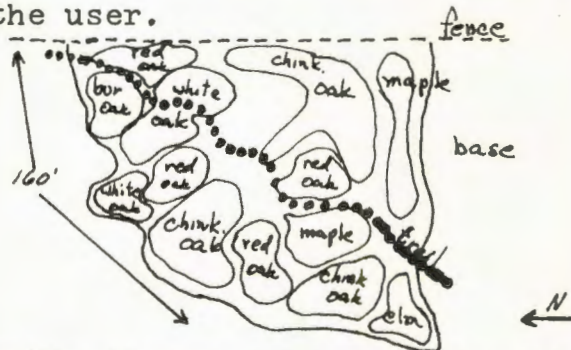 the user.
fence
red
oak
chink.
oak
maple
bur
oak
white
oak
base
red
oak
160'
white
oak
red
oak
chink.
oak
red
oak
maple
trail
chink
oak
elm
N